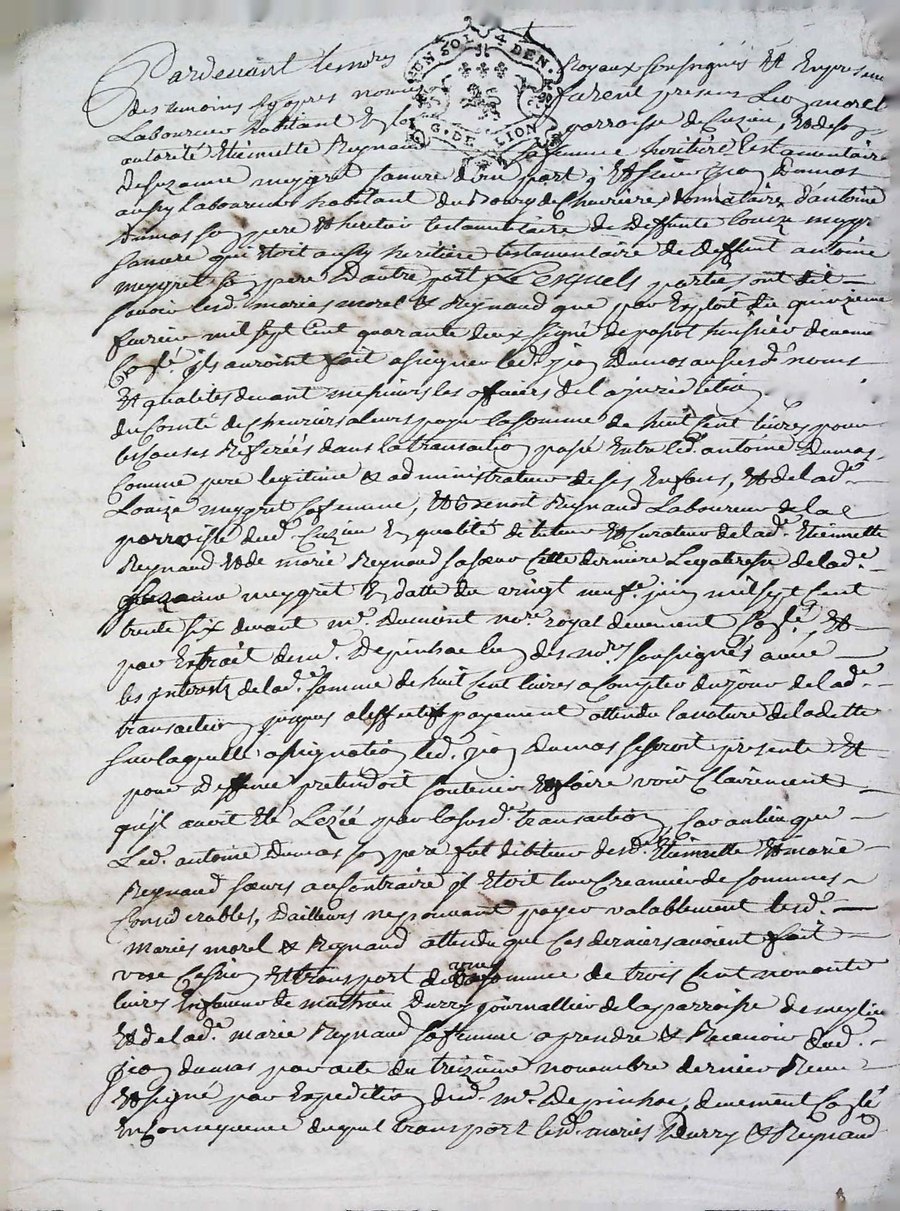 UN SOL 4 DEN.
G. DE LION
Pardevant les no.res Royaux soussignés Et En presence
des temoins cy apres nommés furent presens Leo. morel
Laboureur habitant En la parroisse de Cuzieu, Et de son
autorité Etiennette Reynaud sa femme heritiere testamentaire
de Suzanne meygret sa mere d'une part, Et sieur jean Dumas
aussy Laboureur habitant du Bourg de Chevrieres, donnataire d'antoine
Dumas son pere Et heritier testamentaire de deffunte Louize meygret
sa mere qui Etoit aussy heritiere testamentaire de deffunt antoine
meygret son pere D'autre part, Lesquels parties ont dit
savoir lesd. maries morel Et Reynaud que par Exploit du quinzieme
fevrier mil sept cent quarante deux signé huissier duement
Con.lé ils auroint fait assigner led. jean Dumas aux susd. noms
Et qualités devant messieurs les officiers de la jurisdiction
du Comté de Chevrieres a leurs payer la somme de huit cent livres pour
les Causes Referées dans la transaction passé Entre led. antoine Dumas
Comme pere legitime Et administrateur de ses Enfans, Et de lad.
Louize meygret sa femme, Et Benoit Reynaud Laboureur de la
parroisse dud. Cuzieu En qualité de tuteur Et Curateur de lad. Etiennette
Reynaud Et de marie Reynaud sa sœur Cette derniere Legataire de lad.e
Suzanne meygret En datte du vingt neuf.e juin mil sept cent
trente six devant m.e Dumont no.re royal duement Con.lé, Et
par Extrait dem.e Depinhac lun des no.res soussignés avec
les interets de lad.e somme de huit Cent livres a Compter du jour de lad.e
transaction jusques a leffectif payement attendu la nature de la dette
sur laquelle assignation led. jean Dumas se seroit presenté Et
pour Deffence pretendoit soutenir Et faire voir Clairement
qu'il avoit Eté Lezée par la susd. transaction, Car au lieu que
Led. antoine Dumas son pere fut debiteur desd. Etiennette Et marie
Reynaud sœurs au Contraire il Etoit leur Creancier de sommes
Considerables, D'ailleurs ne pouvant payer valablement lesd.
maries morel Et Reynaud attendu que Ces derniers avoient fait
une Cession Et transport d'une somme de trois Cent nonante
livres En faveur de mathieu Durry journallier de la parroisse de meylieu
Et de lad.e marie Reynaud sa femme a prendre Et Recevoir dud.
jean dumas par acte du treizieme novembre dernier Recu
Et signé par Expedition dud. m.e Depinhac, duement Con.lé
En Consequence duquel transport lesd. maries Durry Et Reynaud